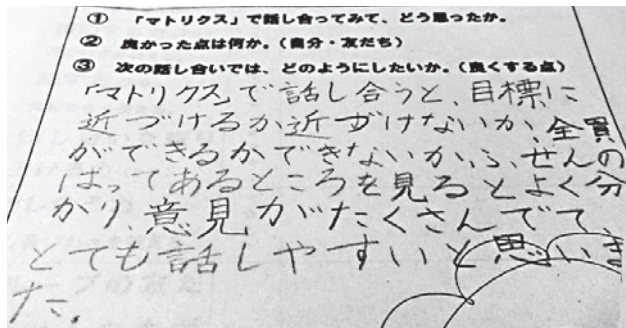 ① 「マトリクス」で話し合ってみて、どう思ったか。
② 良かった点は何か。(自分・友だち)
③ 次の話し合いでは、どのようにしたいか。(良くする点)
「マトリクス」で話し合うと、目標に
近づけるか近づけないか、全員
ができるかできないか、ふせんの
はってあるところを見るとよく分
かり、意見がたくさんでて
とても話しやすいと思いま
た。